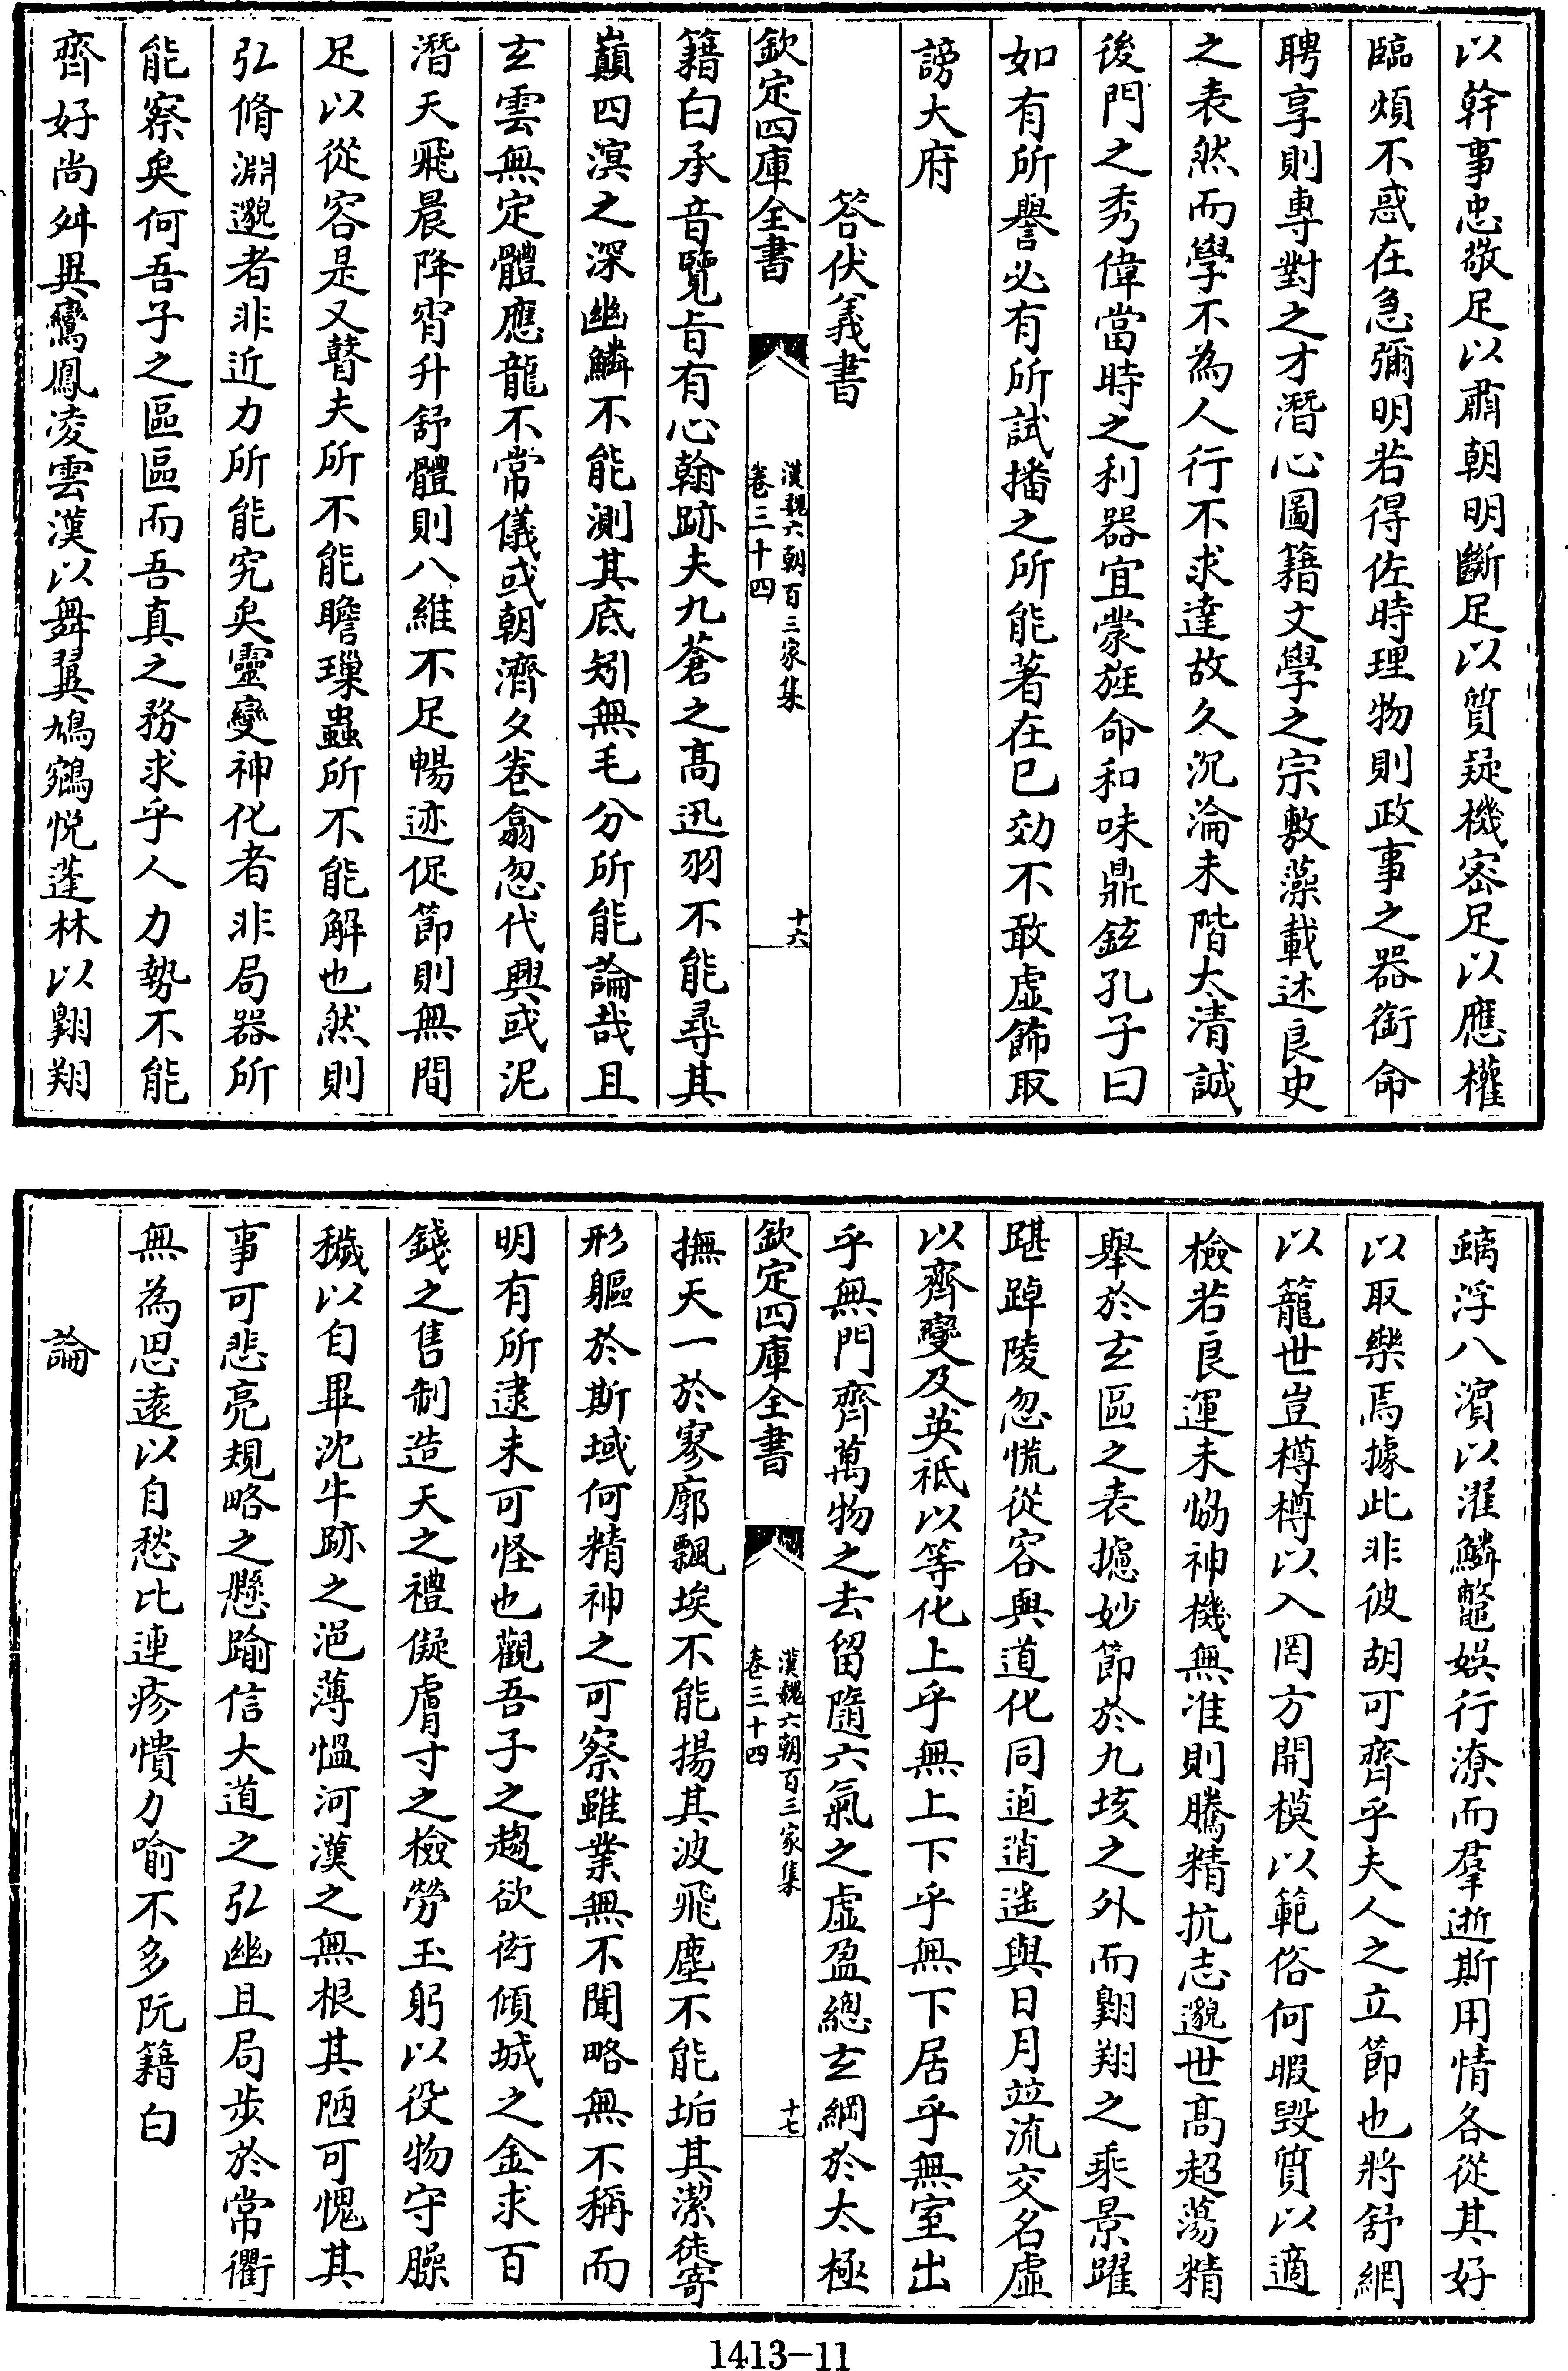 以幹事忠敬足以肅朝明斷足以質疑機密足以應權
臨煩不惑在急彌明若得佐時理物則政事之器銜命
聘享則專對之才潛心圖籍文學之宗敷藻載述良史
之表然而學不為人行不求達故久沉淪未階太清誠
後門之秀偉當時之利器宜蒙旌命和味鼎鉉孔子曰
如有所譽必有所試播之所能著在已効不敢虛飾取
謗大府
答伏義書
欽定四庫全書
漢魏六朝百三家集
卷三十四
十六
籍白承音覽㫖有心翰跡夫九蒼之髙迅羽不能尋其
巔四溟之深幽鱗不能測其底矧無毛分所能論哉且
玄雲無定體應龍不常儀或朝濟夕卷翕忽代興或泥
潛天飛晨降宵升舒體則八維不足暢迹促節則無間
足以從容是又瞽夫所不能瞻璅蟲所不能解也然則
弘脩淵邈者非近力所能究矣靈變神化者非局器所
能察矣何吾子之區區而吾真之務求乎人力勢不能
齊好尚舛異鸞鳳凌雲漢以舞翼鳩鷃悅蓬林以翺翔
螭浮八濱以濯鱗鼈娛行潦而羣逝斯用情各從其好
以取樂焉據此非彼胡可齊乎夫人之立節也將舒網
以籠世豈樽樽以入罔方開模以範俗何暇毀質以適
檢若良運未恊神機無准則騰精抗志邈世髙超蕩精
舉於玄區之表攄妙節於九垓之外而翺翔之乘景躍
踸踔陵忽慌從容與道化同逌逍遙與日月竝流交名虛
以齊變及英祗以等化上乎無上下乎無下居乎無室出
乎無門齊萬物之去留隨六氣之虛盈總玄綱於太極
欽定四庫全書
漢魏六朝百三家集
卷三十四
十七
撫天一於寥廓飄埃不能揚其波飛塵不能垢其潔徒寄
形軀於斯域何精神之可察雖業無不聞略無不稱而
明有所逮未可怪也觀吾子之趨欲衒傾城之金求百
錢之售制造天之禮儗膚寸之檢勞玉躬以役物守臊
穢以自畢沈牛跡之浥薄愠河漢之無根其陋可愧其
事可悲亮規略之懸踰信大道之弘幽且局步於常衢
無為思遠以自愁比連疹憒力喻不多阮籍白
論
1413-11